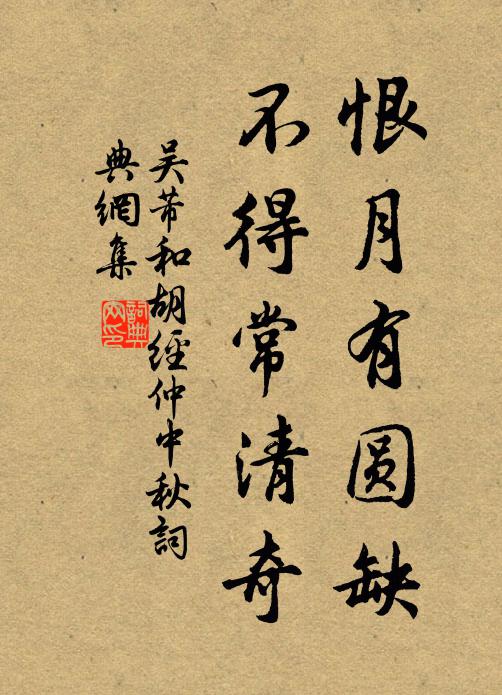 恨月有圆缺
不得常清奇
吴芾和胡经仲中秋詞
典網集
詞典网印